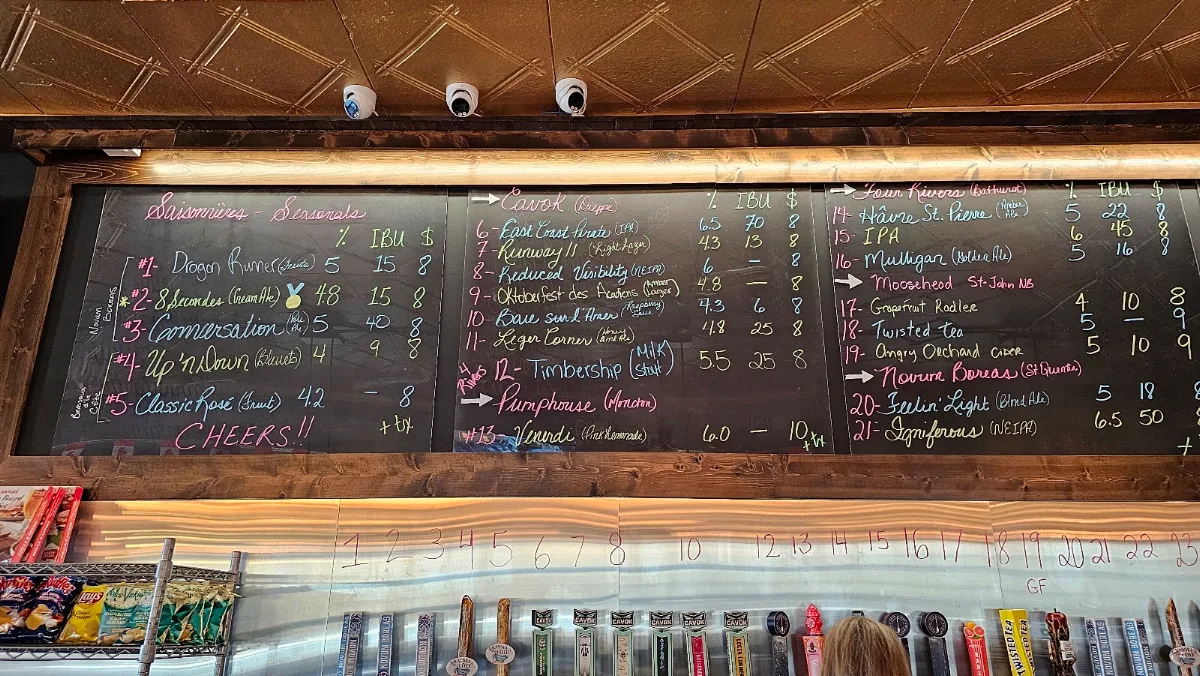 Saisonnières - Seasonals
% IBU $
#1- Dragon Runner (Fruits) 5 15 8
*#2- 8 Secondes (Cream Ale) 4.8 15 8
#3- Conversation (Pale Ale) 5 40 8
Novum Boreas
#4- Up 'n Down (Bleuets) 4 9 8
#5- Classic Rosé (Fruit) 4.2 - 8
CHEERS!! + tx
→ Cavok (Dieppe) % IBU $
6- East Coast Pirate (IPA) 6.5 70 8
7- Runway 11 (Light Lager) 4.3 13 8
8- Reduced Visibility (NEIPA) 6 - 8
9- Oktoberfest des Acadiens (Amber Lager) 4.8 - 8
10- Baie sur l'Amer (Raspberry Sour) 4.3 6 8
11- Leger Corner (Honey Blond Ale) 4.8 25 8
4 Rivers 12- Timbership (Milk stout) 5.5 25 8
→ Pumphouse (Moncton)
#13- Venerdi (Pink Lemonade) 6.0 - 10 + tx
→ Four Rivers (Bathurst) % IBU $
14- Hâvre St. Pierre (Amber Ale) 5 22 8
15- IPA 6 45 8
16- Mulligan (Golden Ale) 5 16 8
→ Moosehead St-John NB
17- Grapefruit Radler 4 10 8
18- Twisted Tea 5 - 9
19- Angry Orchard Cider 5 10 9
→ Novum Boreas (St Quentin)
20- Feelin' Light (Blond Ale) 5 18 8
21- Igniferous (NEIPA) 6.5 50
+
1 2 3 4 5 6 7 8 10 12 13 14 15 16 17 18 19 20 21 22 23
GF
Lay's
CAVOK CAVOK CAVOK CAVOK CAVOK CAVOK
NOVUM BOREAS
TWISTED TEA
NOVUM BOREAS